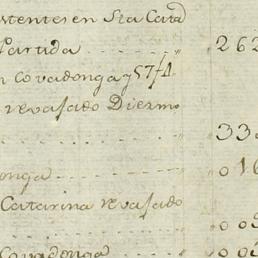 istentes en Sta Cata
Partida . . . . . . . . " 262
n Covadonga y 574.
revajado Diezmo
. . . . . . . . " 33
onga . . . . . . . . 016
Catarina revajado
. . . . . . . . 00
Covadonga . . . . . . " 00